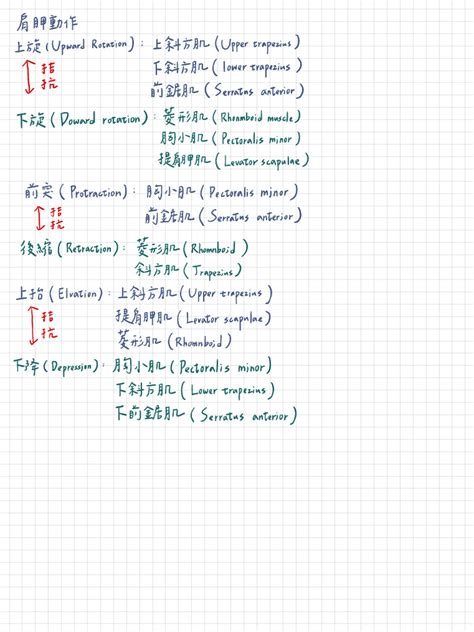 肩胛動作
上旋(Upward Rotation): 上斜方肌(Upper trapezius)
下斜方肌(lower trapezius)
前鋸肌(Serratus anterior)
拮抗
下旋(Doward rotation): 菱形肌(Rhomboid muscle)
胸小肌(Pectoralis minor)
提肩胛肌(Levator scapulae)
前突(Protraction): 胸小肌(Pectoralis minor)
前鋸肌(Serratus anterior)
拮抗
後縮(Retraction): 菱形肌(Rhomnboid)
斜方肌(Trapezius)
上抬(Elvation): 上斜方肌(Upper trapezius)
提肩胛肌(Levator scapulae)
菱形肌(Rhomnboid)
拮抗
下降(Depression): 胸小肌(Pectoralis minor)
下斜方肌(Lower trapezius)
下前鋸肌(Serratus anterior)